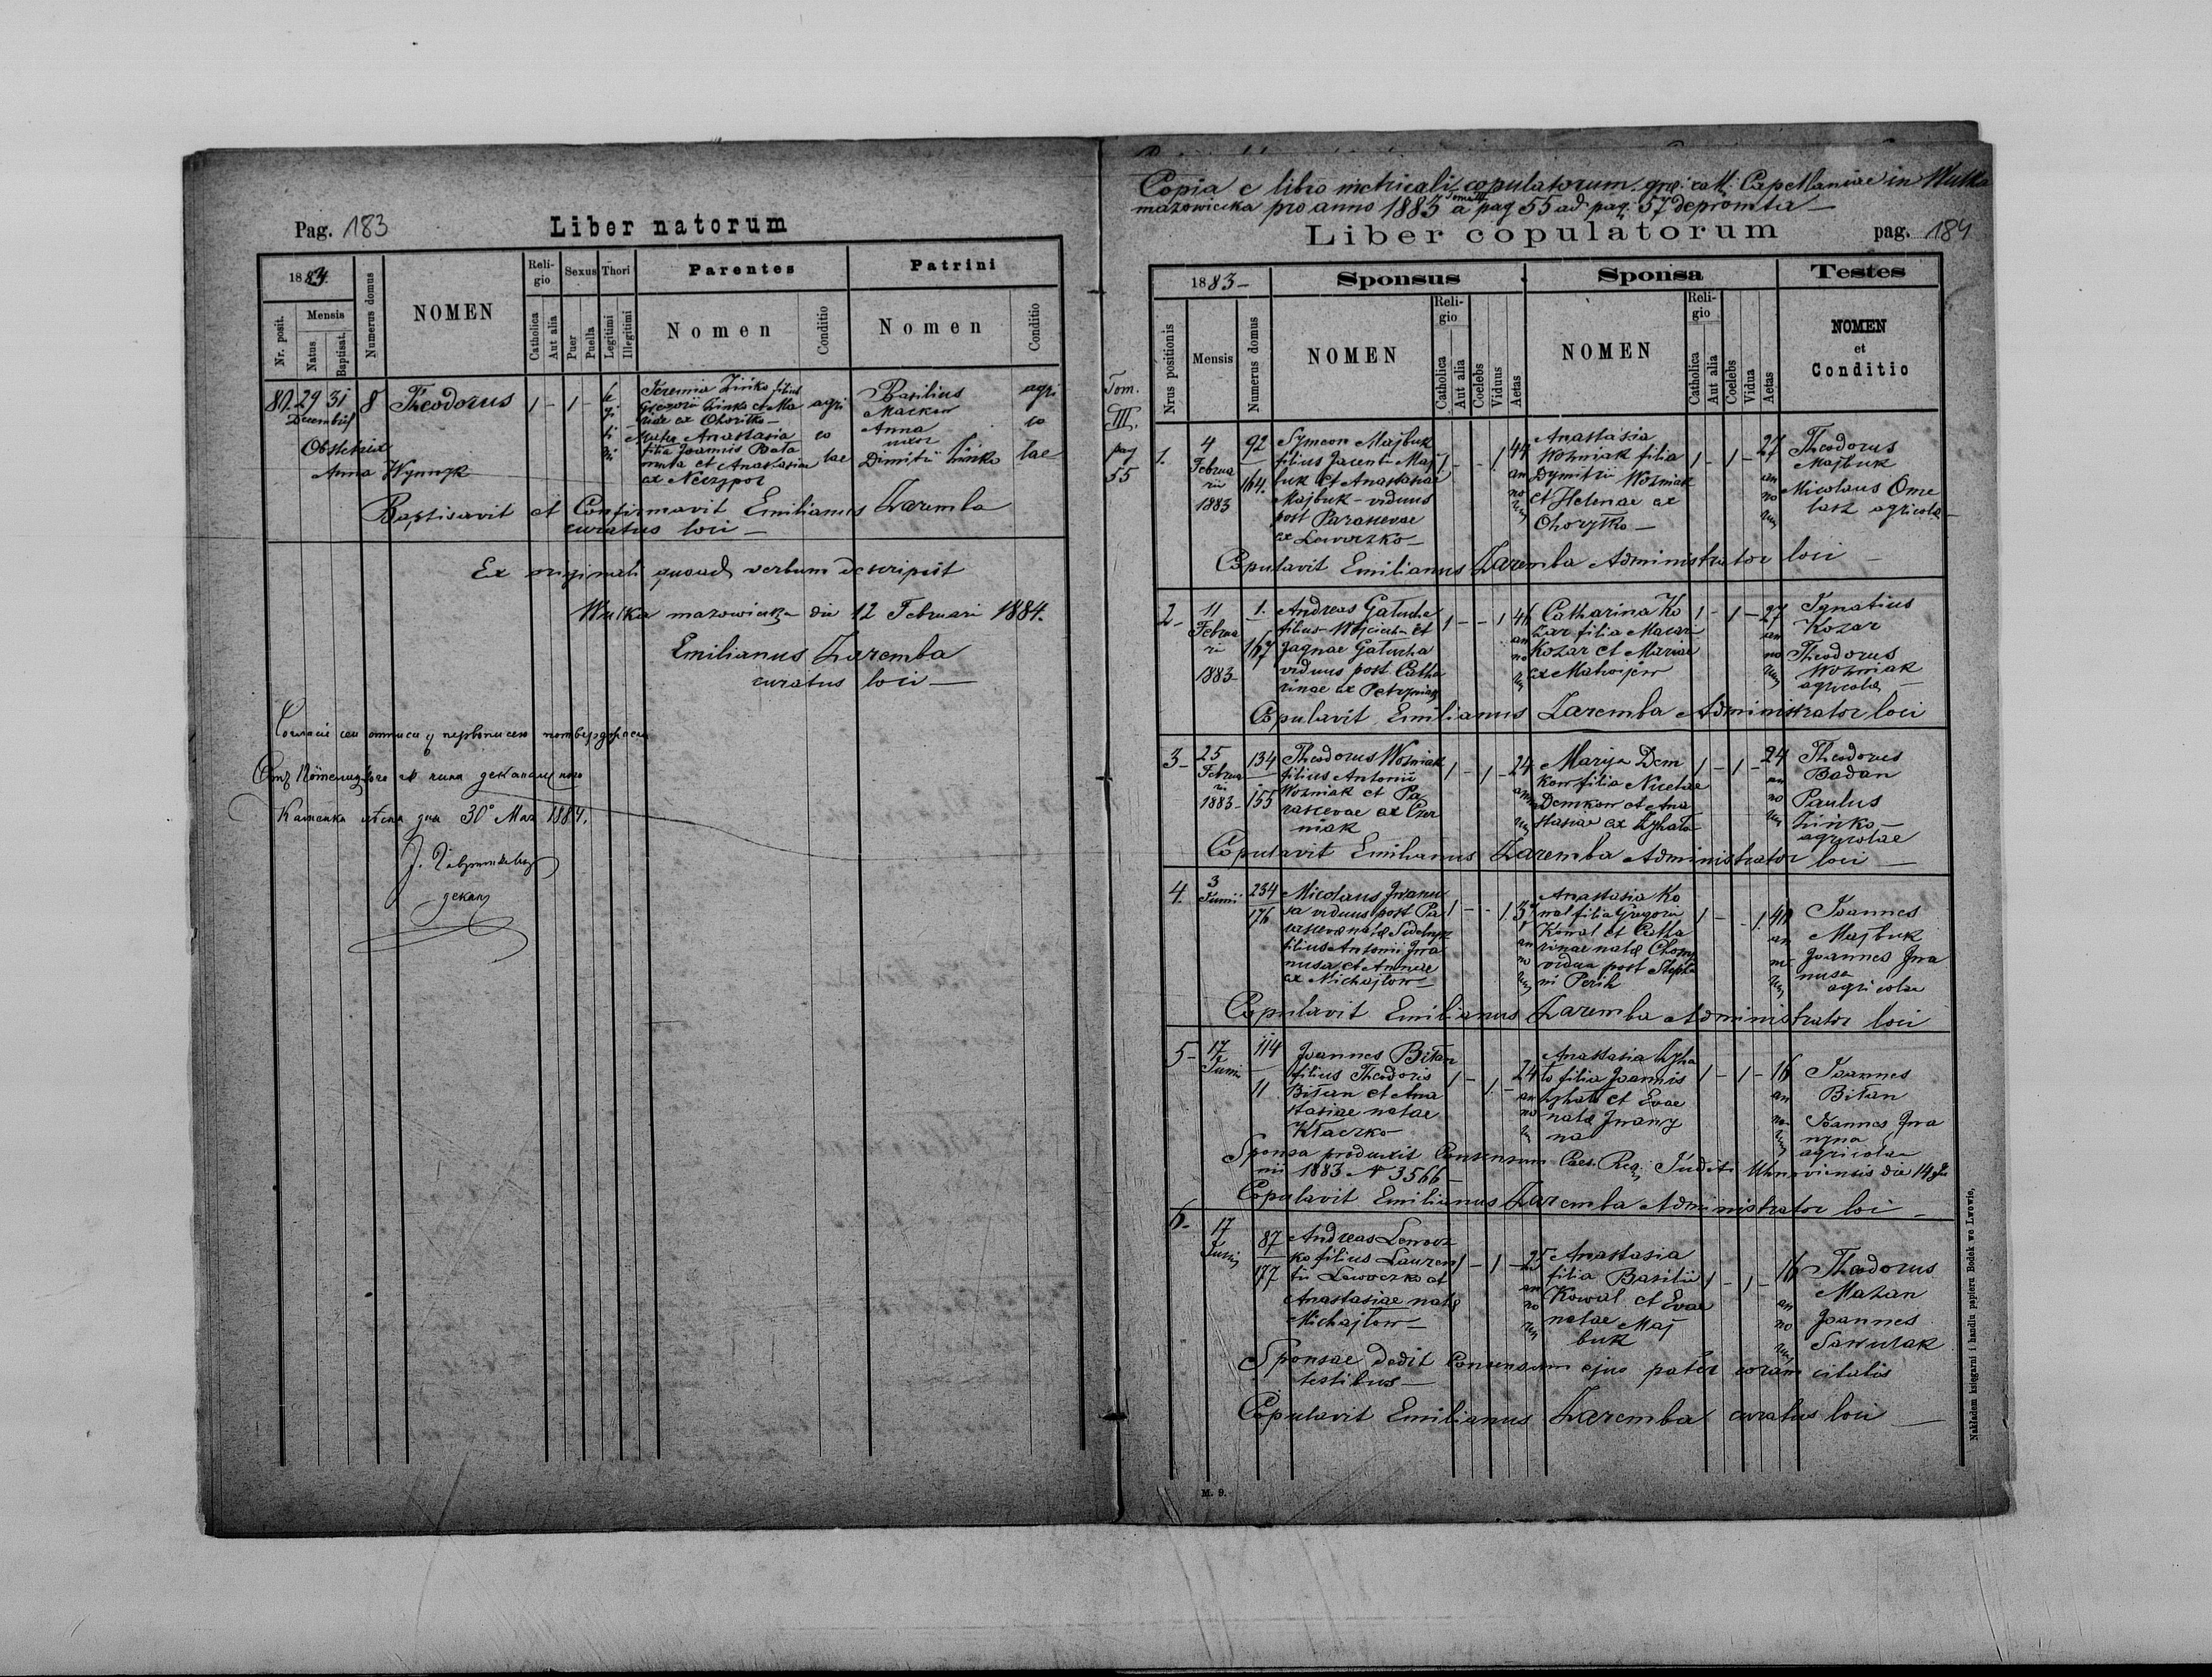 Pag. 183
Liber natorum
1883.
Nr. posit.
Mensis
Natus
Baptisat.
Numerus domus
NOMEN
Religio
Catholica
Aut alia
Sexus
Puer
Puella
Thori
Legitimi
Illegitimi
Parentes
Nomen
Conditio
Patrini
Nomen
Conditio
80. 29 31 8 Theodorus 1 - 1 -
Decembris
Obstetrix
Anna Wynnyk
le
gi
ti
mi
Jeremia Zińko filius
Gregorii Zinko et Ma
riae ex Choritko
Mater Anastasia
filia Joannis
et Anastasiae
ex Neczypor
agri
co
lae
Basilius
Mackiw
Anna
uxor
Dimitrii Zińko
agri
co
lae
Baptisavit et Confirmavit Emilianus Zaremba
curatus loci —
Ex originali quoad verbum descripsit
Wulka mazowiecka die 12 Februari 1884.
Emilianus Zaremba
curatus loci —
Каменка дня 30° Мая 1884.
декан
Copia e libro metricali copulatorum gr. cath. Capellaniae in Wulka
mazowiecka pro anno 1883 Tom III a pag 55 ad pag. 57 depromta —
Liber copulatorum
pag. 184
1883 -
Nrus positionis
Mensis
Numerus domus
Sponsus
NOMEN
Religio
Catholica
Aut alia
Coelebs
Viduus
Aetas
Sponsa
NOMEN
Religio
Catholica
Aut alia
Coelebs
Vidua
Aetas
Testes
NOMEN
et
Conditio
Tom.
III.
pag
55
1.
4
Februa
rii
1883
92
164.
Symeon Majbuk
filius Jacenti Maj
buk et Anastasiae
Majbuk - viduus
post Parascevae
ex Lewoczko —
1 - - 1 44
an
no
rum
Anastasia
Wozniak filia
Dymitrii Wozniak
et Helenae ex
Chorytko —
1 - 1 - 27
an
no
rum
Theodorus
Majbuk
Nicolaus Ome
lasz agricolae
Copulavit Emilianus Zaremba Administrator loci —
2 -
11
Februa
rii
1883 -
1.
167
Andreas Gałucha
filius Wojciechi et
Jagnae Gałucha
viduus post Catha
rinae ex
1 - - 1 46
an
no
rum
Catharina Ko
zar filia Macari
Kozar et Mariae
ex Matwijów
1 - 1 - 27
an
no
rum
Ignatius
Kozar
Theodorus
Wozniak
agricolae
Copulavit Emilianus Zaremba Administrator loci
3 -
25
Februa
rii
1883 -
134
155
Theodorus Wozniak
filius Antonii
Wozniak et Pa
rascevae ex Czer
niak
1 - 1 - 24
anno
rum
Marija Dem
kow filia Nicetae
Demkow et Ana
stasiae ex Zyhało
1 - 1 - 24
an
no
rum
Theodorus
Badan
Paulus
Zińko —
agricolae
Copulavit Emilianus Zaremba Administrator loci —
4.
3
Junii
234
176
Nicolaus Iwanu
sa viduus post Pa
rascevae natae
filius Antonii Iwa
nusa et Annae
ex Michajlow —
1 - - 1.
an
no
rum
Anastasia Ko
wal filia Gregorii
Kowal et Catha
rinae natae
vidua post Stepha
ni Perih
1 - - 1. 40
an
no
rum
Joannes
Majbuk
Joannes Iwa
nusa
agricolae
Copulavit Emilianus Zaremba Administrator loci
5 -
17
Junii
114
11
Joannes Bitan
filius Theodoris
Bitan et Ana
stasiae natae
Kłaczko —
1 - 1. - 24
an
no
rum
Anastasia Zyha
ło filia Joannis
Zyhało et Evae
natae Iwany
na
1 - 1 - 16
an
no
rum
Joannes
Bitan
Joannes Iwa
nyna
agricolae
Sponsa produxit Consensum Caes. Reg. Judicii Uhnoviensis die 14 Ju
nii 1883 N 3566 —
Copulavit Emilianus Zaremba Administrator loci —
6 -
17
Junii
87
177
Andreas Lewocz
ko filius Lauren
tii Lewoczko et
Anastasiae natae
Michajlow —
1 - 1 - 25
an
no
rum
Anastasia
filia Basilii
Kowal et Evae
natae Maj
buk
1 - 1 - 16
an
no
rum
Theodorus
Mazan
Joannes
Sawulak
Sponsae dedit Consensum ejus pater coram citatis
testibus —
Copulavit Emilianus Zaremba curatus loci —
M. 9.
Nakładem księgarni i handlu papieru Bodek we Lwowie.